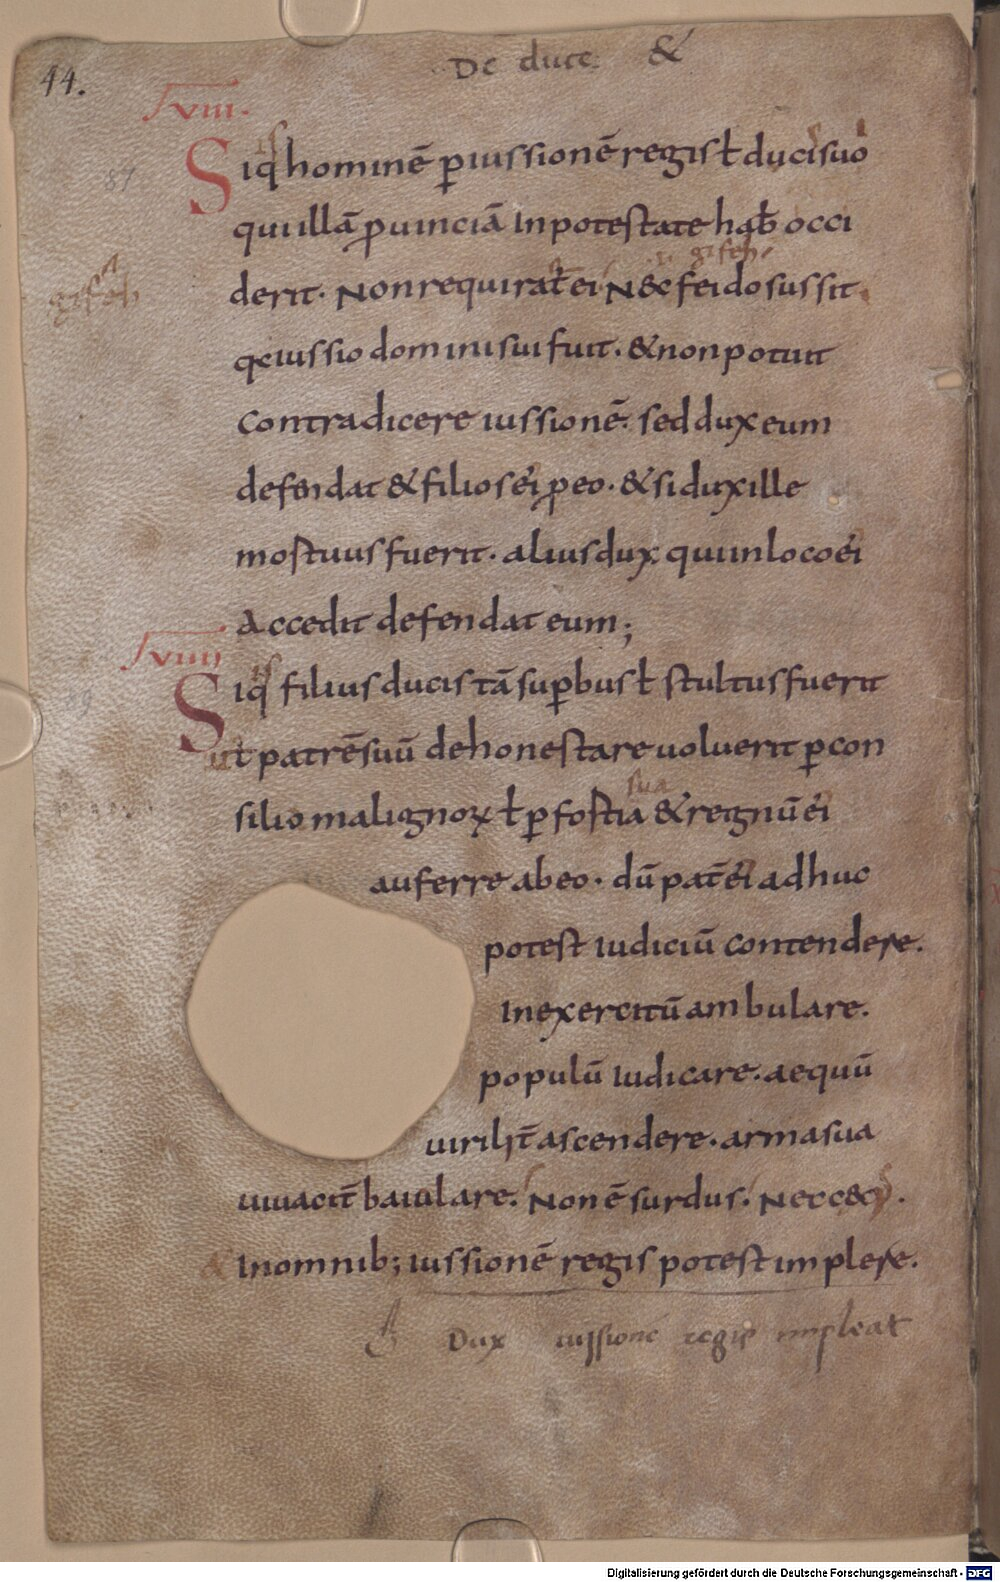 44.
De duce &
VIII.
is
Siq hominē ꝑ iussionē regis ł duci suo
qui illā ꝓuinciā in potestate hab& occi
gifeh
derit. Non requirat ei N&c feidosus sit
gifeh
qc iussio domini sui fuit. & non potuit
contradicere iussionē. sed dux eum
defendat & filios ei ꝓ eo. & si dux ille
mostuus fuerit. alius dux qui in loco ei
Accedit defendat eum;
VIIII
is
Siq filius ducis tā suꝑbus ł stultus fuerit
ut patrē suū dehonestare uoluerit ꝑ con
sua
silio malignoꝝ ł ꝑ fostia & regnū ei
auferre ab eo. dū pat̄ ei adhuc
potest iudiciū contendere.
In exercitū ambulare.
populū iudicare. aequū
uirilit̄ ascendere. arma sua
uiuacit̄ baiulare. Non ē surdus. Nec c&cus.
& In omnib; iussionē regis potest implere.
Dux iussionē regis impleat
Digitalisierung gefördert durch die Deutsche Forschungsgemeinschaft - DFG